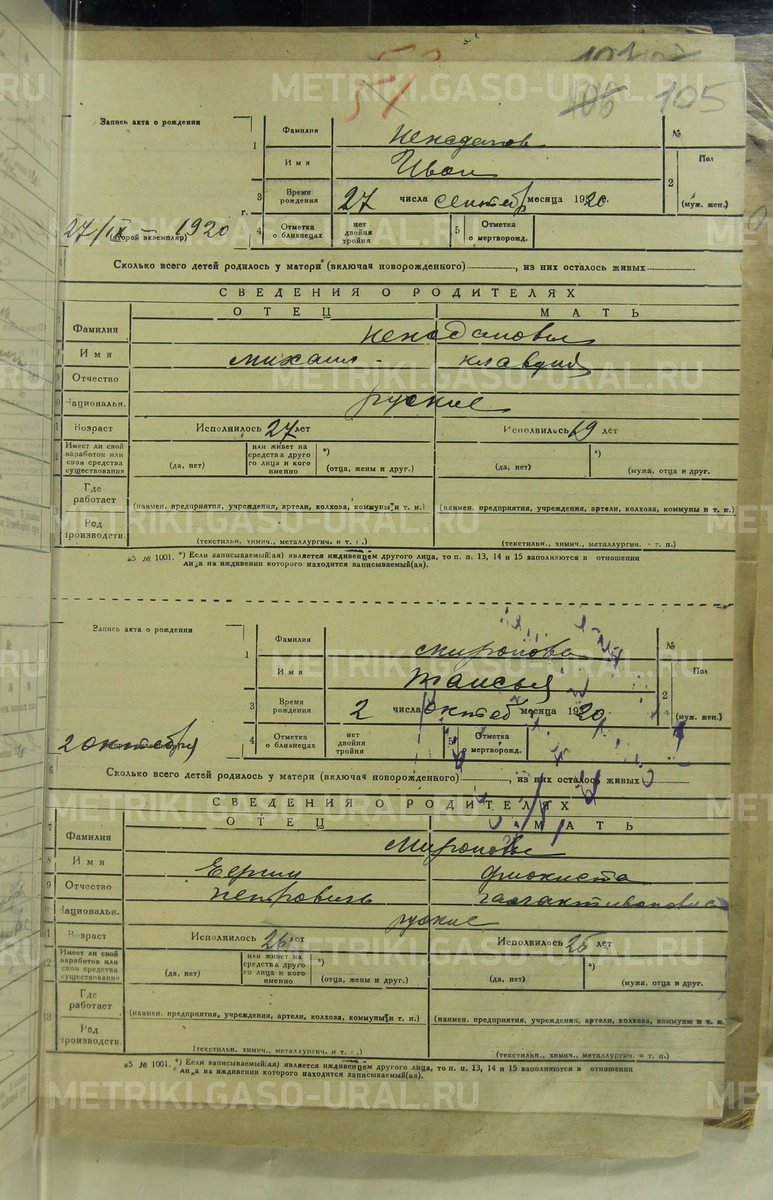 105
Запись акта о рождении
1 Фамилия
Имя Иван
№
2 Пол
(муж. жен.)
3 Время рождения 27 числа сентяб месяца 1920 г.
27/IX – 1920 г.
(второй экземпляр)
4 Отметка о близнецах нет двойня тройня 5 Отметка о мертворожд.
Сколько всего детей родилось у матери (включая новорожденного) , из них осталось живых
СВЕДЕНИЯ О РОДИТЕЛЯХ
ОТЕЦ МАТЬ
Фамилия
Имя Михаил - Клавдия
Отчество
Национальн. руские
Возраст Исполнилось 27 лет Исполнилось 19 лет
Имеет ли свой заработок или свои средства существования (да, нет) или живет на средства друго го лица и кого именно *) (отца, жены и друг.) (да, нет) *) (мужа, отца и друг.
Где работает (наимен. предприятия, учреждения, артели, колхоза, коммуны и т. п.) (наимен. предприятия, учреждения, артели, колхоза, коммуны и т. п.)
Род производств. (текстильн. химич., металлургич. и т. п.) (текстильн., химич., металлургич. и т. п.)
а5 № 1001. *) Если записываемый(ая) является иждивенцем другого лица, то п. п. 13, 14 и 15 заполняются в отношении
лица на иждивении которого находится записываемый(ая).
Запись акта о рождении
1 Фамилия Миронова
Имя Таисья
№
2 Пол
(муж. жен.)
3 Время рождения 2 числа октяб месяца 1920 г.
2 октября
4 Отметка о близнецах нет двойня тройня 5 Отметка о мертворожд.
6 Сколько всего детей родилось у матери (включая новорожденного) , из них осталось живых
СВЕДЕНИЯ О РОДИТЕЛЯХ
ОТЕЦ МАТЬ
7 Фамилия Мироновы
8 Имя
9 Отчество Петровичь
Национальн. руские
Возраст Исполнилось 26 лет Исполнилось 25 лет
12 Имеет ли свой заработок или свои средства существование (да, нет) или живет на средства друго го лица и кого именно *) (отца, жены и друг.) (да, нет) *) (мужа, отца и друг.
13 Где работает (наимен. предприятия, учреждения, артели, колхоза, коммуны и т. п.) (наимен. предприятия, учреждения, артели, колхоза, коммуны и т. п.)
Род производств. (текстильн., химич., металлургич. и т. п.) (текстильн., химич., металлургич. и т. п.)
а5 № 1001. *) Если записываемый(ая) является иждивенцем другого лица, то п. п. 13, 14 и 15 заполняются в отношении
лица на иждивении которого находится записываемый(ая).
METRIKI.GASO-URAL.RU